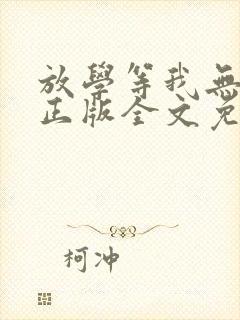 放學等我無
正版全文免
柯冲